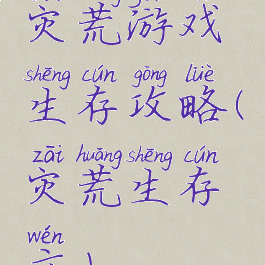 灾荒游戏
shēng cún gōng lüè
生存攻略(
zāi huāng shēng cún
灾荒生存
wén